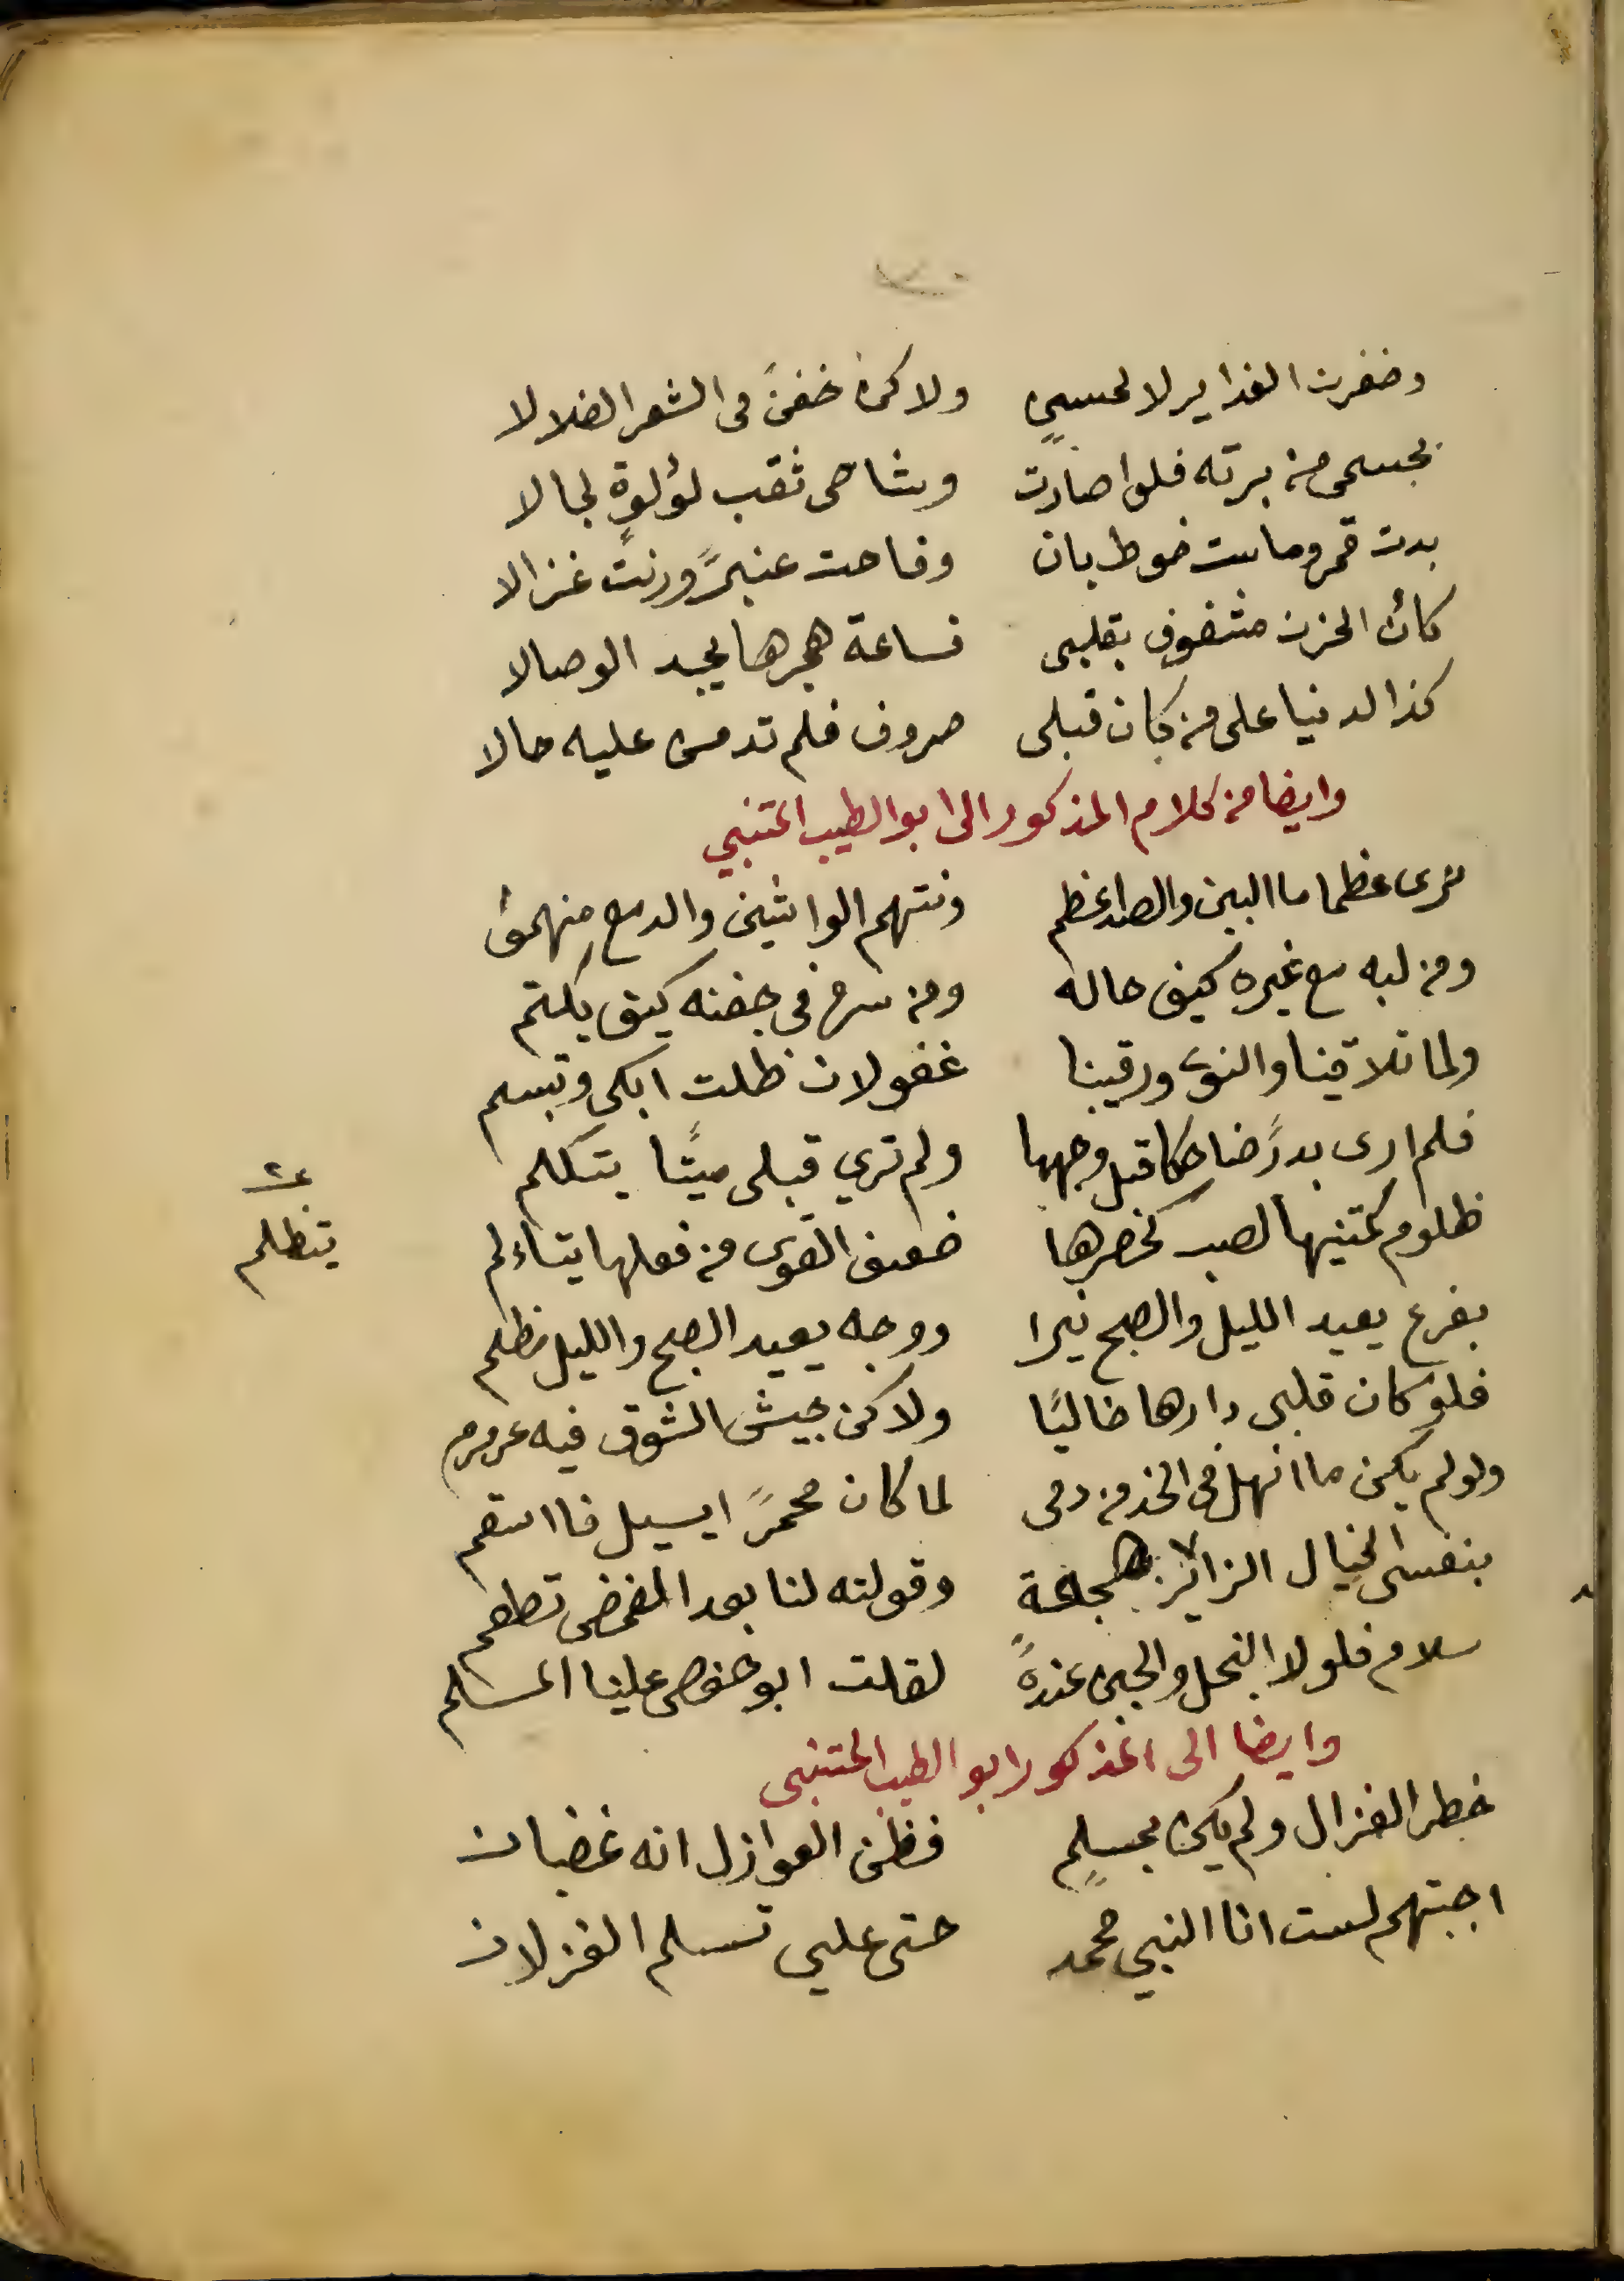 وضفرن الغداير لا لحسنٍ ولاكن خفنَ في الشعر الضلالا
بجسمي من برته فلو اصارت وشاحى ثقب لؤلوةٍ لجالا
بدت قمر ومابست خوط بان وفاحت عنبرً ورنت غزالا
كأن الحزن مشغوف بقلبي فساعة هجرها يجد الوصالا
كذا الدنيا على من كان قبلى صروف فلم تدمن عليه حالا
وايضا من كلام المذكور الى ابو الطيب المتنبي
نرى عظما ما البين والصد اعظم ونتهم الواشين والدمع منهمو
ومن لبه مع غيره كيف حاله ومن سره في جفنه كيف يكتم
ولما تلاقينا والنوى ورقيبنا غفولان ظلت ابكى وتبسم
فلم ارى بدرً ضاحكا قبل وجهها ولم تري قبلى ميتًا يتكلم
ظلوم كمتنيها لصب كخصرها ضعيف القوى من فعلها يتاءلم
يتظلم
بفرع يعيد الليل والصبح نيرا ووجه يعيد الصبح والليل مظلم
فلو كان قلبى دارها خاليًا ولاكن جيش الشوق فيه عرمرم
ولو لم يكن ما انهل في الخد من دمى لما كان محمرً ايسيل فااسقم
بنفسى الخيال الزائر بعد هجعة وقولته لنا بعد الغمض تطعم
سلام فلولا البخل والجبن عندهً لقلت ابو حفص علينا المسلم
وايضا الى المذكور ابو الطيب المتنبى
خطر الغزال ولم يكن بمسلمٍ فظن العوازل انه غضبان
اجبتهم لست انا النبي محمد حتى علي تسلم الغزلان